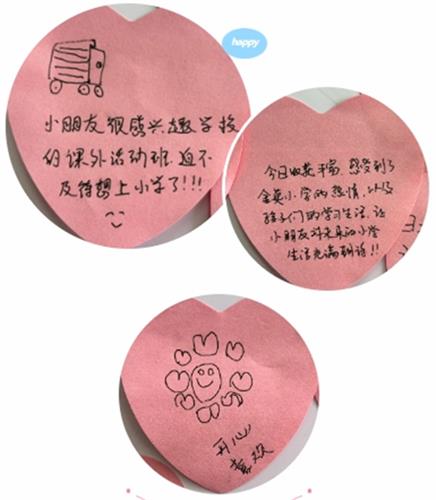 happy
小朋友很感兴趣学校
的课外活动班,迫不
及待想上小学了!!!
今日收获丰富,感受到了
金英小学的热情,以及
孩子们的学习生活,让
小朋友对未来的小学
生活充满期待!!
开心
喜欢